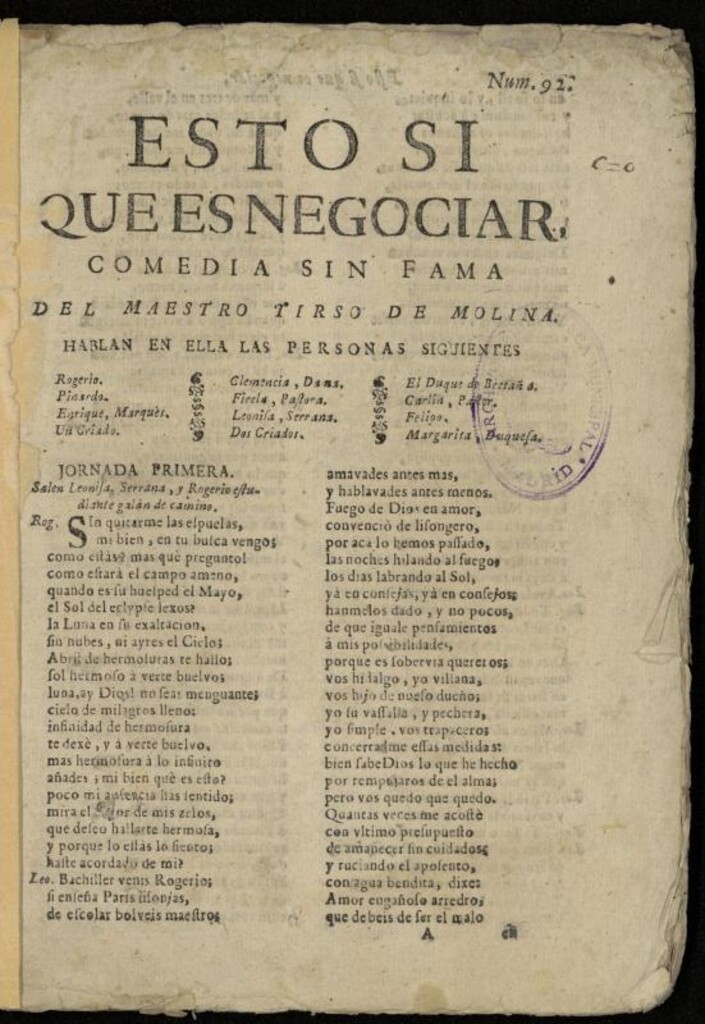 Num. 92.
C=0
ESTO SI
QUE ES NEGOCIAR,
COMEDIA SIN FAMA
DEL MAESTRO TIRSO DE MOLINA.
HABLAN EN ELLA LAS PERSONAS SIGUIENTES
Rogerio.
Pinardo.
Enrique, Marquès.
Un Criado.
Clemencia, Dama.
Firela, Pastora.
Leonisa, Serrana.
Dos Criados.
El Duque de Bretaña.
Carlin, Pastor.
Felipo.
Margarita, Duquesa.
MADRID
JORNADA PRIMERA.
Salen Leonisa, Serrana, y Rogerio estu-
diante galán de camino.
Rog. SIn quitarme las espuelas,
mi bien, en tu busca vengo;
como estás? mas què pregunto!
como estará el campo ameno,
quando es su huesped el Mayo,
el Sol del eclypse lexos?
la Luna en su exaltacion,
sin nubes, ni ayres el Cielo;
Abril de hermosuras te hallo;
sol hermoso à verte buelvo;
luna, ay Dios! no seas menguante;
cielo de milagros lleno:
infinidad de hermosura
te dexè, y à verte buelvo,
mas hermosura à lo infinito
añades; mi bien què es esto?
poco mi ausencia has sentido;
mira el de mis zelos,
que deseo hallarte hermosa,
y porque lo estás lo siento;
haste acordado de mi?
Leo. Bachiller venis Rogerio;
si enseña Paris lisonjas,
de escolar bolveis maestro;
amavades antes mas,
y hablavades antes menos.
Fuego de Dios en amor,
convenciò de lisongero,
por acà lo hemos passado,
las noches hilando al fuego,
los dias labrando al Sol,
yà en consejas, yà en consejos;
hanmelos dado, y no pocos,
de que iguale pensamientos
à mis possibilidades,
porque es sobervia quereros;
vos hidalgo, yo villana,
vos hijo de nueso dueño;
yo su vassalla, y pechera,
yo simple, vos trapacero;
concertadme essas medidas:
bien sabe Dios lo que he hecho
por rempujaros de el alma;
pero vos quedo que quedo.
Quantas veces me acostè
con vltimo presupuesto
de amanecer sin cuidados;
y ruciando el aposento,
con agua bendita, dixe:
Amor engañoso arredro,
que debeis de ser el malo
A